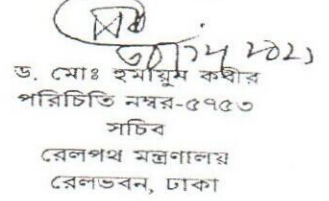 ড. মোঃ হুমায়ুন কবীর
পরিচিতি নম্বর-৫৭৫৩
সচিব
রেলপথ মন্ত্রণালয়
রেলভবন, ঢাকা